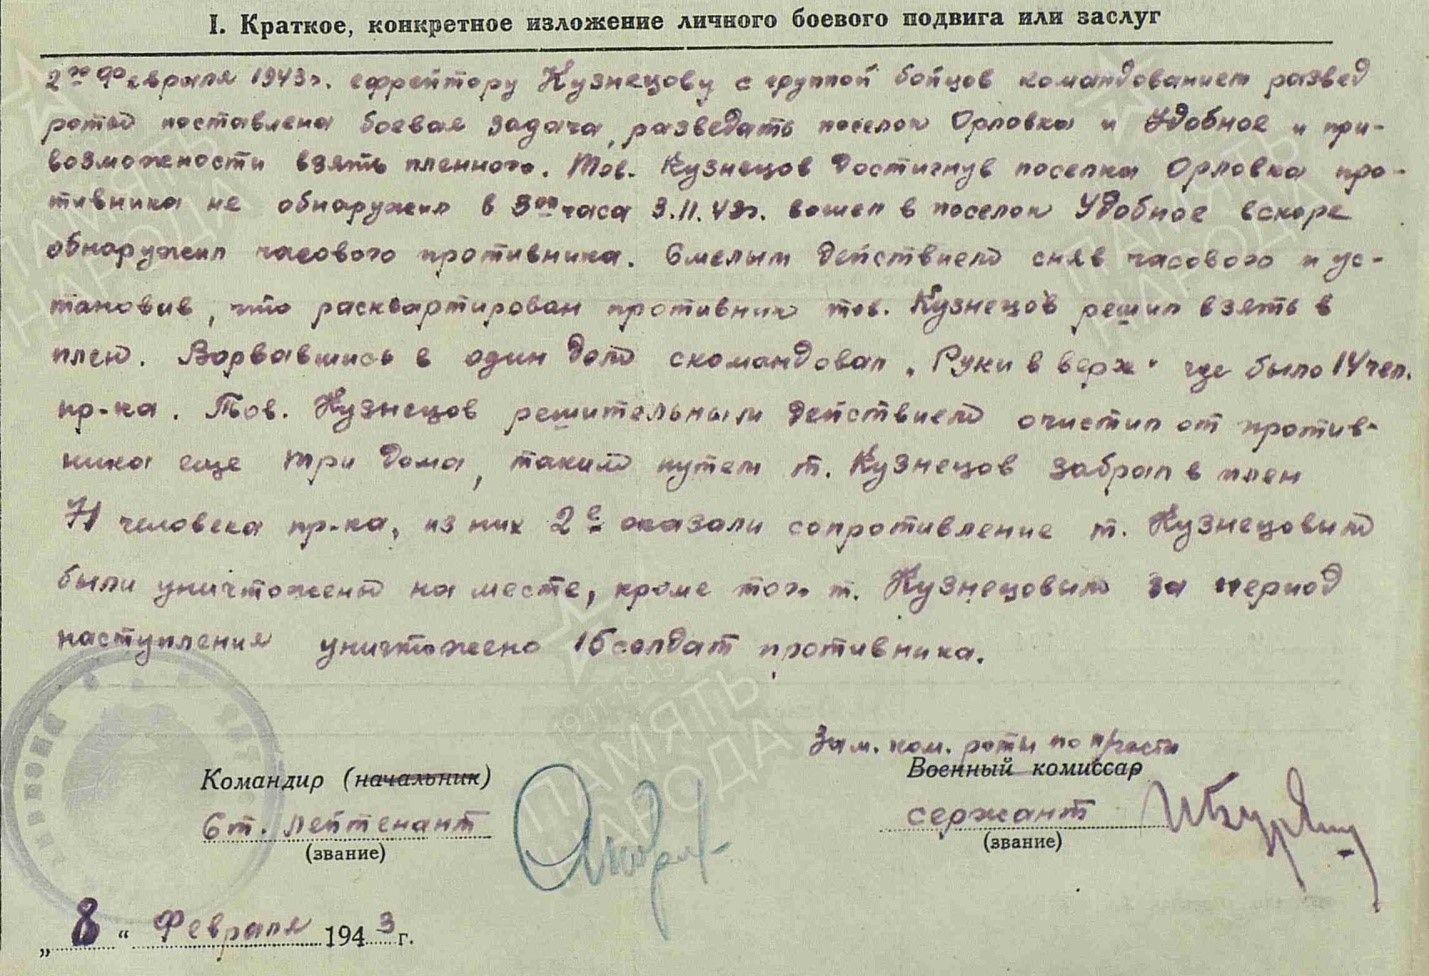 I. Краткое, конкретное изложение личного боевого подвига или заслуг
2го февраля 1943г. ефрейтору Кузнецову с группой бойцов командованием развед
роты поставлена боевая задача, разведать поселок Орловка и Удобное и при-
возможности взять пленного. Тов. Кузнецов достигнув поселка Орловка про-
тивника не обнаружил в 3 часа 3.II.43г. вошел в поселок Удобное вскоре
обнаружил часового противника. Смелым действием сняв часового и ус-
тановив, что расквартирован противник тов. Кузнецов решил взять в
плен. Ворвавшись в один дом скомандовал „Руки в верх" где было 14 чел.
пр-ка. Тов. Кузнецов решительным действием очистил от против-
ника еще три дома, таким путем т. Кузнецов забрал в плен
71 человека пр-ка, из них 2е оказали сопротивление т. Кузнецовым
были уничтожены на месте, кроме того т. Кузнецовым за период
наступления уничтожено 16 солдат противника.
Зам. ком. роты по п/части
Командир (начальник)
Военный комиссар
Ст. лейтенант
сержант
(звание)
(звание)
„8“ Февраля 1943 г.
ПАМЯТЬ
НАРОДА
1941-1945